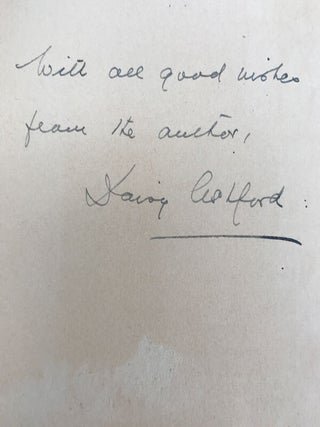 With all good wishes
from the author,
Daisy Ashford.